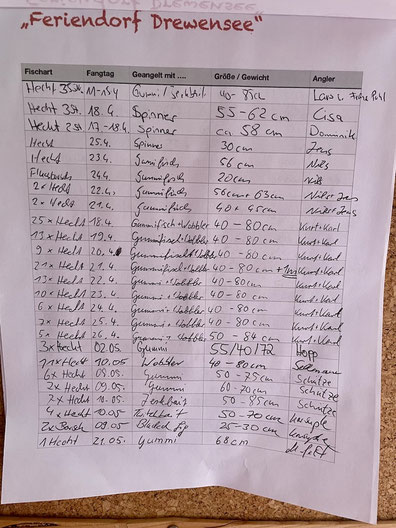 „Feriendorf Drewensee“
Fischart Fangtag Geangelt mit .... Größe / Gewicht Angler
Hecht 3 Stk. 11-15.4 Gummi / 40-85cm Lars u.
Hecht 3St. 18.4. Spinner 55-62 cm Lisa
Hecht 2St 17-18.4. Spinner ca. 58 cm Dominik
Hecht 25.4. Spinner 30 cm Jens
Hecht 23.4. Gummifisch 56 cm Nils
24.4. Gummifisch 20cm Nils
2x Hecht 22.4. Gummifisch 56cm + 63cm Nils + Jens
2x Hecht 21.4. Gummifisch 40 + 45cm Nils + Jens
25x Hecht 18.4. Gummifisch + Wobbler 40-80cm Kurt + Karl
13x Hecht 19.4. Gummifisch + Wobbler 40-80cm Kurt + Karl
9x Hecht 20.4. Gummifisch + Wobbler 40-80cm Kurt + Karl
21x Hecht 21.4. Gummifisch + Wobbler 40-80cm + 1m Kurt + Karl
13x Hecht 22.4. Gummi + Wobbler 40-80cm Kurt + Karl
10x Hecht 23.4. Gummi + Wobbler 40-80cm Kurt + Karl
6x Hecht 24.4. Gummi + Wobbler 40-80cm Kurt + Karl
7x Hecht 25.4. Gummi + Wobbler 40-80cm Kurt + Karl
5x Hecht 26.4. Gummi + Wobbler 50-84cm Kurt + Karl
3x Hecht 02.05. Gummi 55/40/72 Hopp
11x Hecht 10.05 Wobbler 40-80cm
6x Hecht 09.05. Gummi 50-75cm Schulze
2x Hecht 09.05. Gummi 60-70cm Schulze
7x Hecht 10.05. Jerkbait 50-85cm Schulze
4x Hecht 10.05 50-70cm
2x Barsch 09.05 25-30cm
1 Hecht 21.05. Gummi 68cm